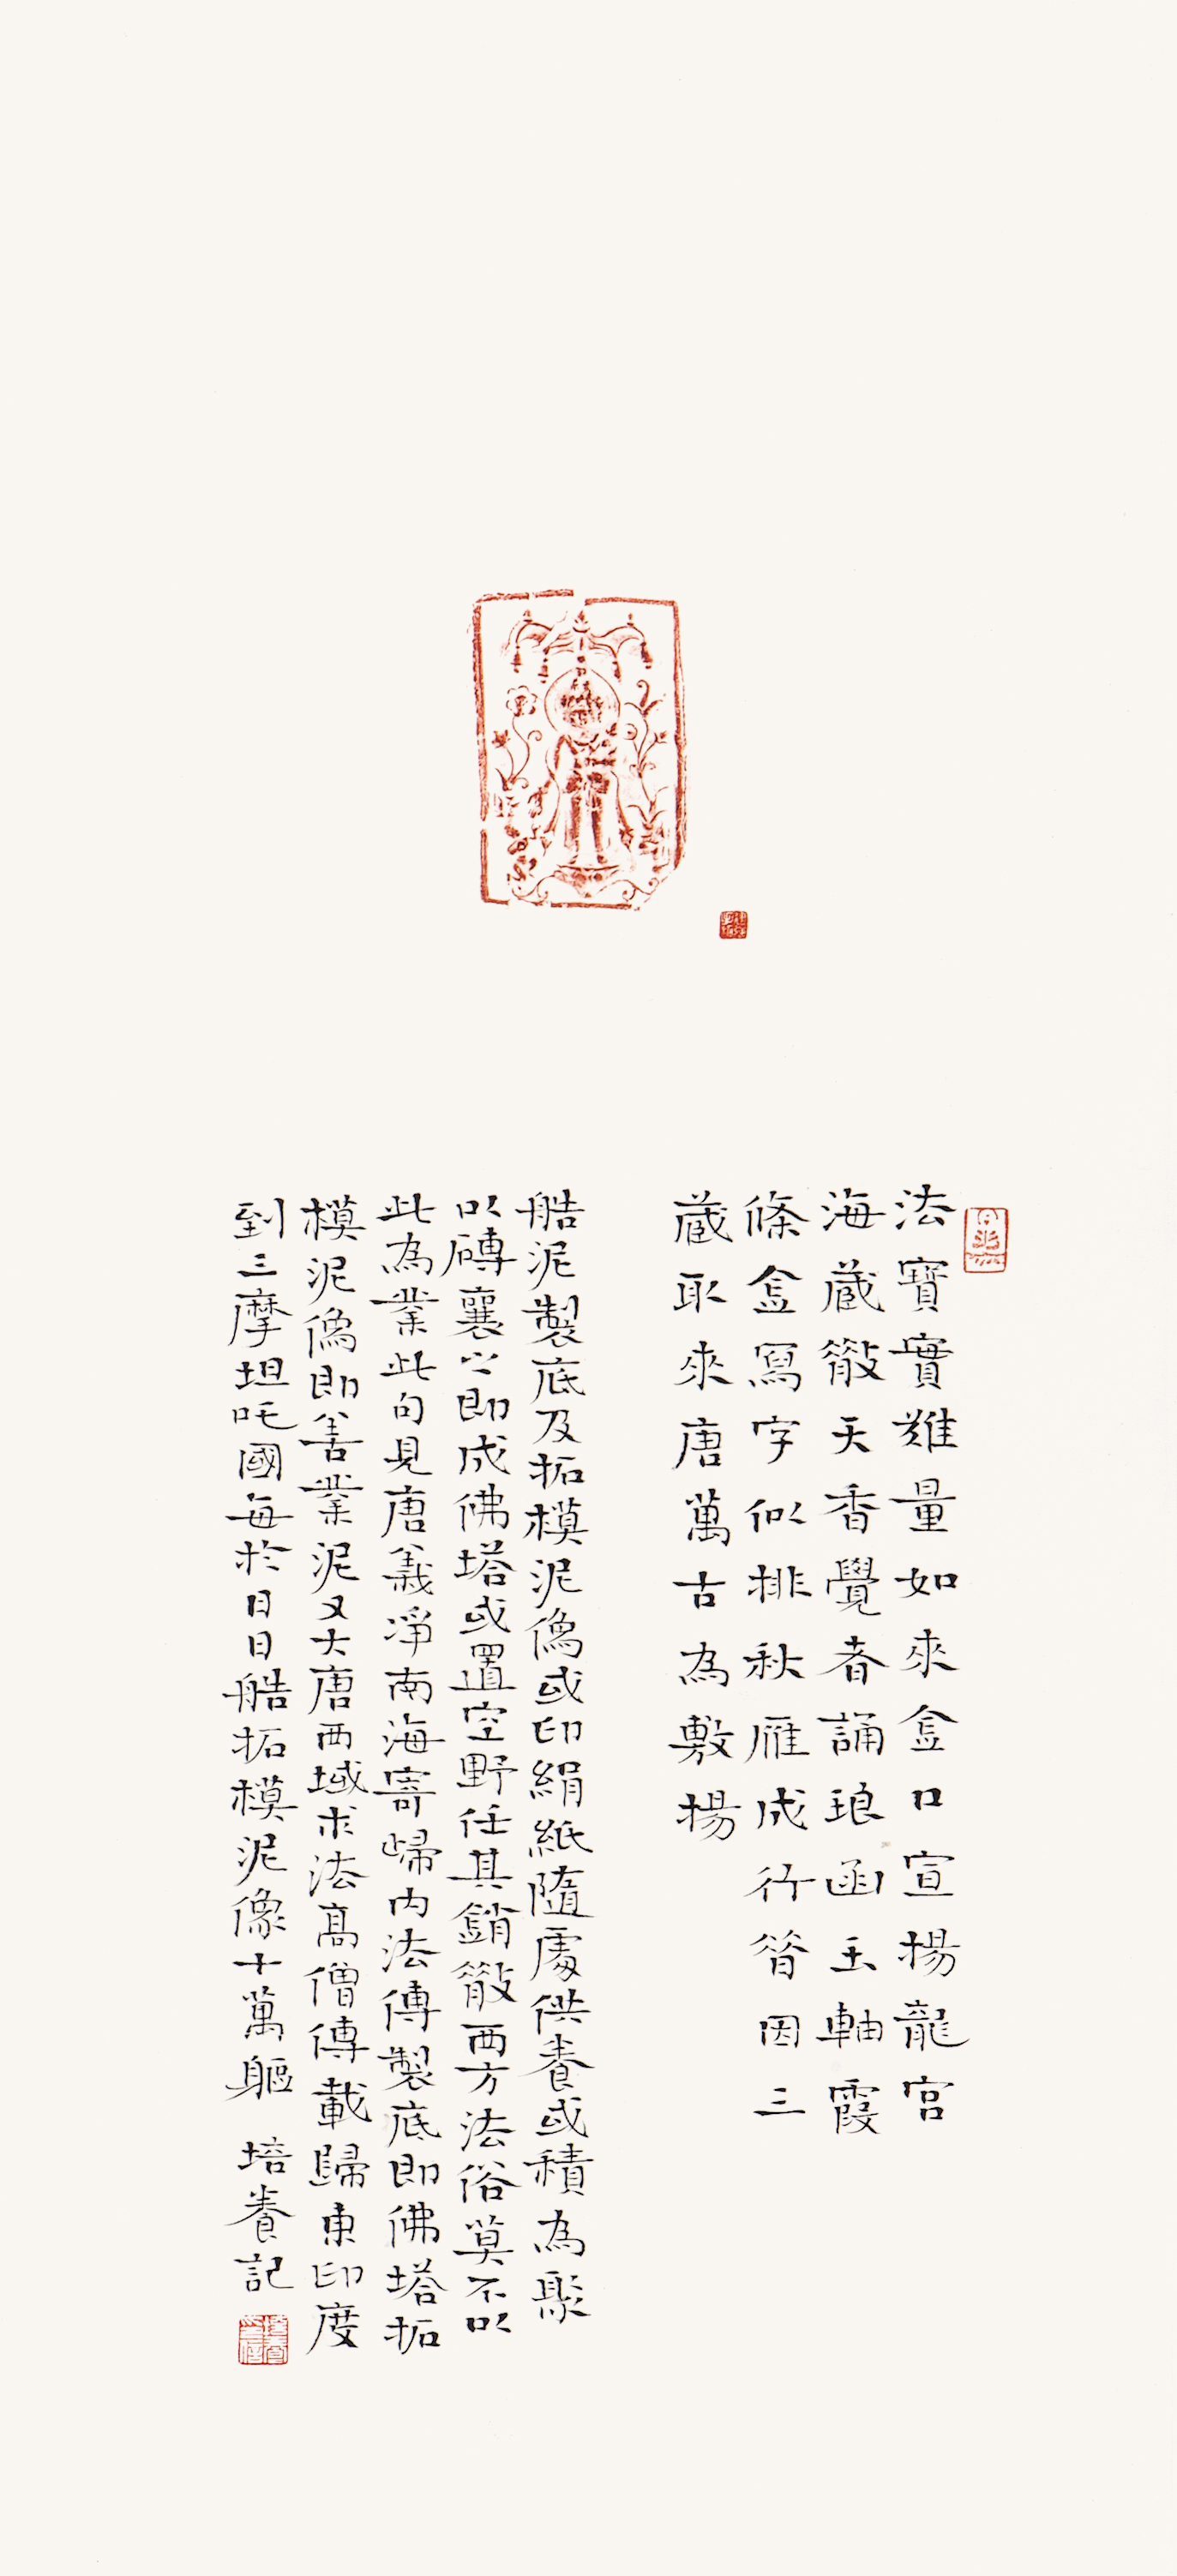 法寶實難量如來金口宣揚龍宮
海藏散天香覺者誦琅函玉軸霞
條金寫字似排秋雁成行昔因三
藏取來唐萬古為敷揚
造泥製底及拓模泥像或印絹紙隨處供養或積為聚
以磚裹之即成佛塔或置空野任其銷散西方法俗莫不以
此為業此句見唐義淨南海寄歸內法傳製底即佛塔拓
模泥像即善業泥又大唐西域求法高僧傳載歸東印度
到三摩呾吒國每於日日造拓模泥像十萬軀 培養記